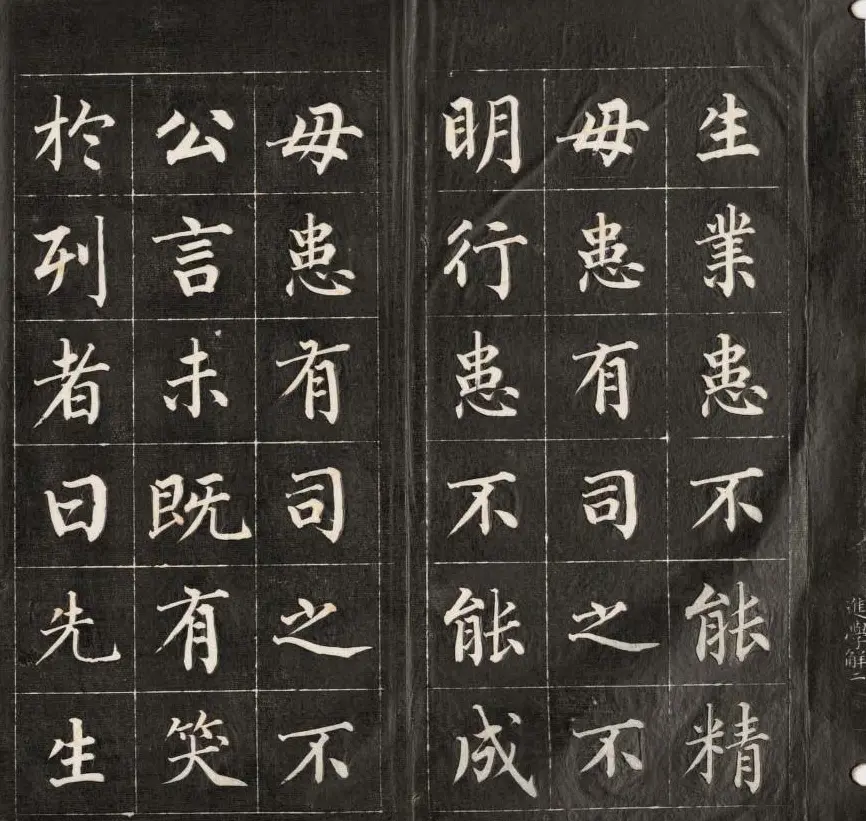 生業患不能精
毋患有司之不
明行患不能成
毋患有司之不
公言未既有笑
於列者曰先生
進學解二